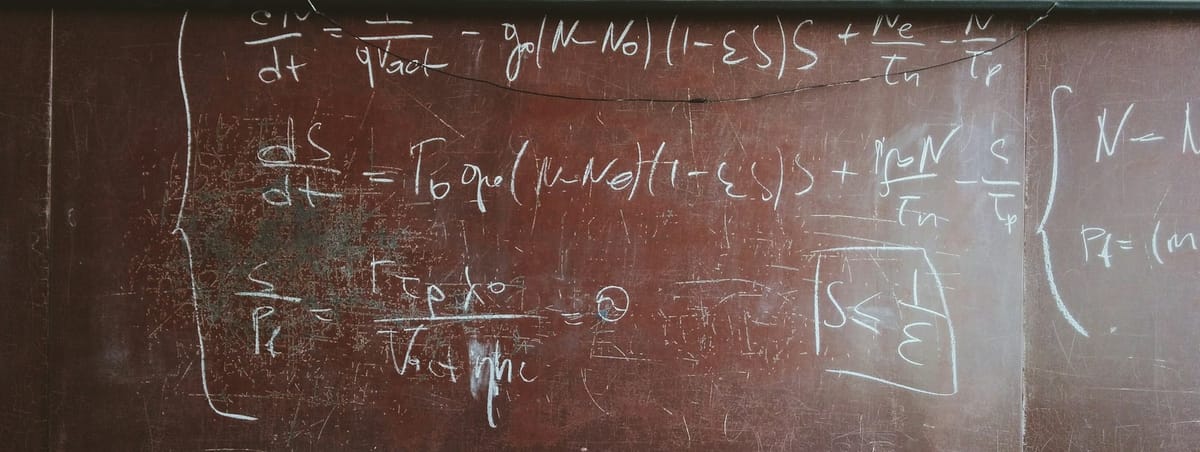 dN/dt = 1/qVact - g0(N-N0)(1-εS)S + Ne/τn - N/τp
dS/dt = Γ0 g0(N-N0)(1-εS)S + N/τn - S/τp
S/Pf = Γτpλ0/Vact ηhc =
S ≤ 1/ε
N - N
Pf = (m